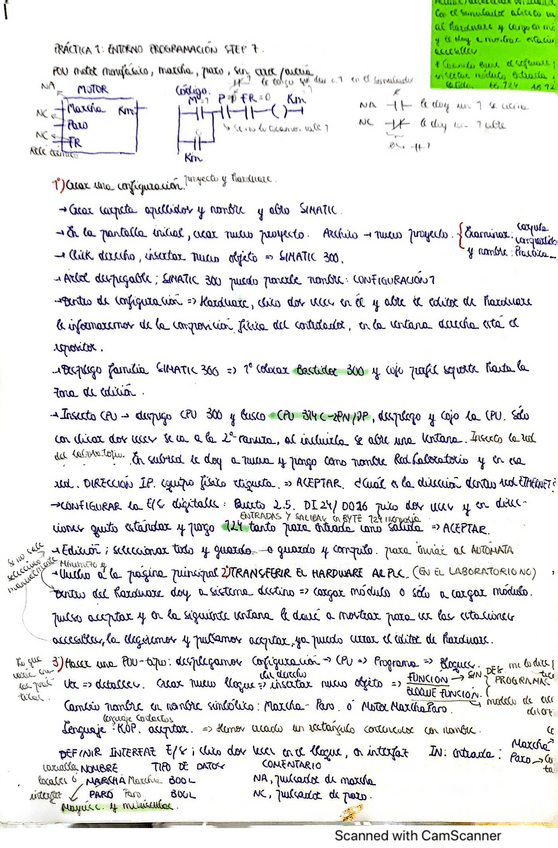 Con el simulador abierto
al hardware y cargo
y le doy a mostrar
accesibles
PRÁCTICA 1: ENTORNO PROGRAMACIÓN STEP 7.
POU motor monofásico, marcha, paro, sin
NA
MOTOR
Código.
NC
Marcha Km
Paro
NC
FR
M P FR=0 Km
Km
NA le doy un 1 se cierra
NC le doy un 1 abre
1º) Crear una configuración. proyecto y Hardware.
→ Crear carpeta apellidos y nombre y abro SIMATIC.
→ En la pantalla inicial, crear nuevo proyecto. Archivo → nuevo proyecto. Examinar: carpeta
y nombre: Práctica_
→ Click derecho, insertar nuevo objeto => SIMATIC 300.
→ Árbol desplegable; SIMATIC 300 puedo ponerle nombre: CONFIGURACIÓN 1
→ Dentro de configuración => Hardware, clico dos veces en él y abre el editor de Hardware
le informaremos de la composición física del controlador, en la ventana derecha está el
repositor.
→ Despliego familia SIMATIC 300 => 1º colocar Bastidor 300 y cojo perfil soporte hasta la
zona de edición.
→ Inserto CPU → despliego CPU 300 y busco CPU 314C-2PN/DP, despliego y cojo la CPU. Solo
con clicar dos veces se va a la 2ª ranura, al incluirla se abre una ventana. Inserto la red
del laboratorio. En subred le doy a nueva y pongo como nombre Red Laboratorio y en esa
red. DIRECCIÓN IP. equipo físico etiqueta. => ACEPTAR. ¿Cuál es la dirección dentro red ETHERNET?
→ CONFIGURAR la E/S digitales: Puerto 2.5. DI 24/DO16 pico dos veces y en direc-
ENTRADAS Y SALIDAS EN BYTE 124 memoria
ciones quito estándar y pongo 124 tanto para entrada como salida => ACEPTAR.
→ Edición; seleccionar todo y guardo → o guardo y compilo. para enviar al AUTÓMATA
Si no sale
selecciono
manualmente
Minimizo y
→ Vuelvo a la página principal 2) TRANSFERIR EL HARDWARE AL PLC. (EN EL LABORATORIO NO)
Dentro del hardware doy a sistema destino => cargar módulo o sólo a cargar módulo.
pulso aceptar y en la siguiente ventana le daré a mostrar para ver las estaciones
accesibles, la elegiremos y pulsamos aceptar, ya puedo cerrar el editor de Hardware.
3) Hacer una POU-tipo: desplegamos configuración → CPU => Programa => Bloques.
Ver => detalles. Crear nuevo bloque => insertar nuevo objeto => FUNCIÓN → SIN
BLOQUE FUNCIÓN.
Cambio nombre en nombre simbólico: Marcha-Paro. ó Motor Marcha Paro.
lenguaje contactos
Lenguaje: KOP. aceptar. => Hemos creado un rectángulo contenedor con nombre.
DEFINIR INTERFAZ E/S; clico dos veces en el bloque, en interfaz IN: entrada: Marcha
Paro
NOMBRE TIPO DE DATOS COMENTARIO
MARCHA Marcha BOOL NA, pulsador de marcha
PARO Paro BOOL NC, pulsador de paro.
Mayúsc. y minúsculas.
Scanned with CamScanner